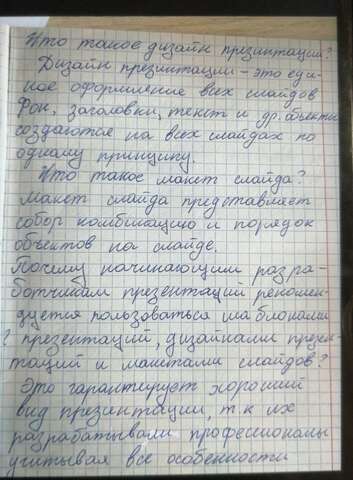 Что такое дизайн презинтации?
Дизайн презинтации - это еди-
ное оформление всех слайдов
Фон, заголовки, текст и др. обьекты
создаются на всех слайдах по
одному принципу.
Что такое макет слайда?
Макет слайда представляет
собой комбинацию и порядок
объектов на слайде.
Почему начинающим разра-
ботчикам презентаций рекомен-
дуется пользоваться шаблонами
? презентаций, дизайнами презен-
таций и макетами слайдов?
Это гарантирует хороший
вид презинтации, т.к их
разрабатывали професионалы
учитывая все особенности